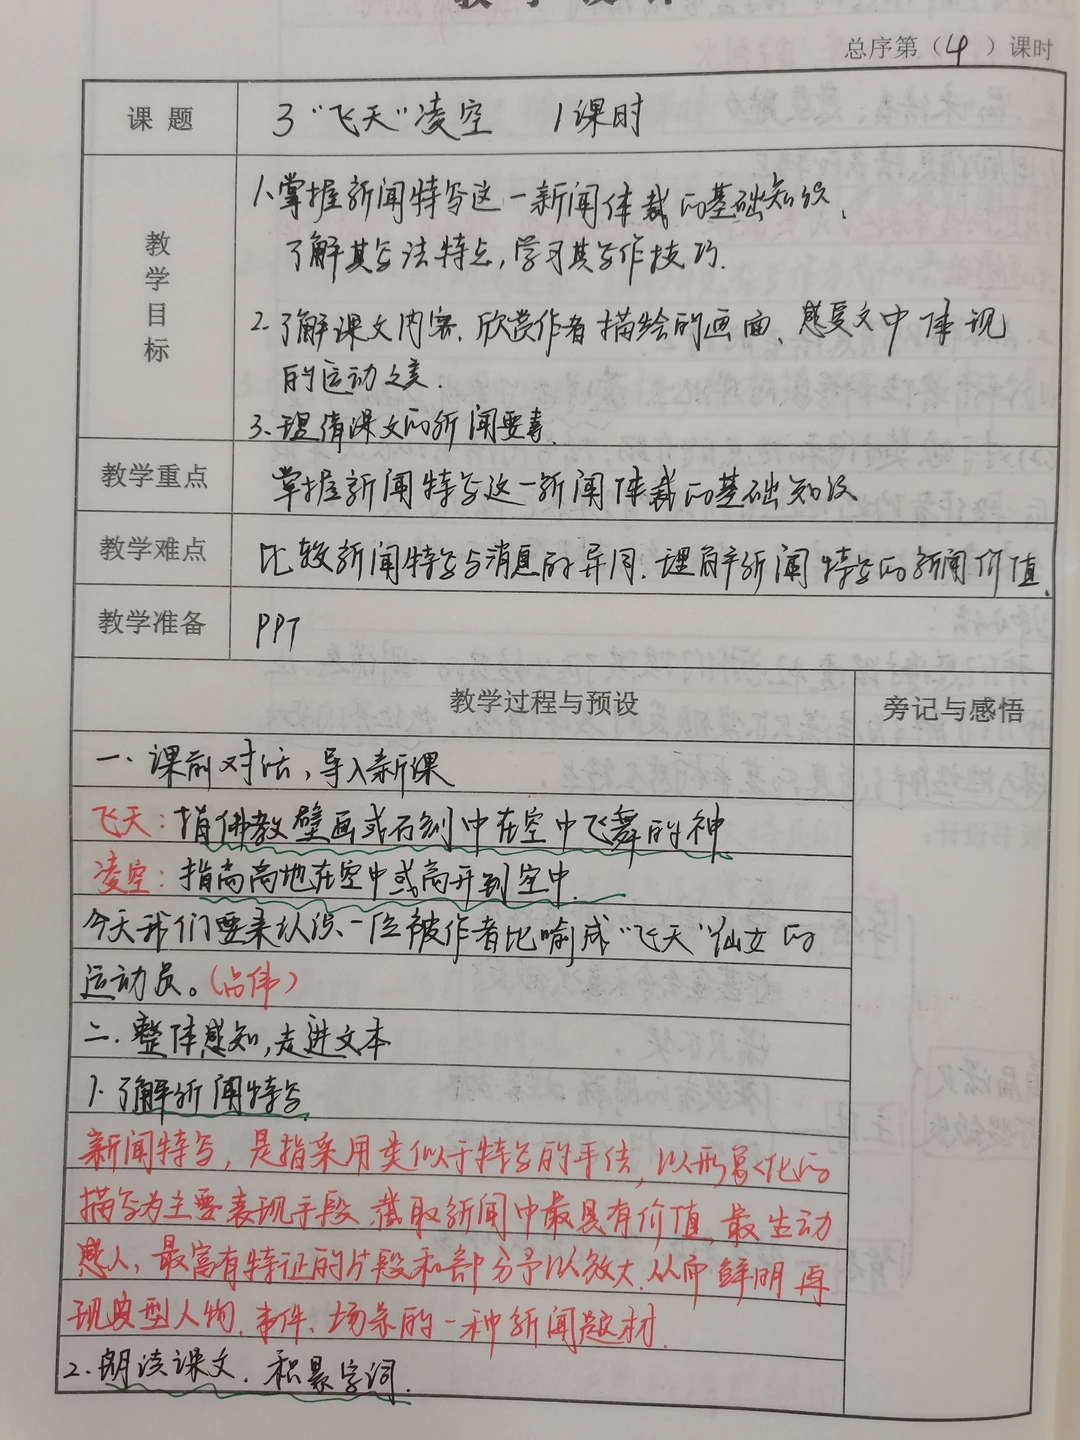 总序第（4）课时
课题 3 "飞天"凌空 1课时
教学目标
1.掌握新闻特写这一新闻体裁的基础知识、
了解其写法特点,学习其写作技巧.
2.了解课文内容.欣赏作者描绘的画面、感受文中体现
的运动之美.
3.理清课文的新闻要素.
教学重点 掌握新闻特写这一新闻体裁的基础知识
教学难点 比较新闻特写与消息的异同.理解新闻特写的新闻价值.
教学准备 PPT
教学过程与预设 旁记与感悟
一、课前对话,导入新课
飞天:指佛教壁画或石刻中在空中飞舞的神
凌空:指高高地在空中或高升到空中.
今天我们要来认识一位被作者比喻成"飞天"仙女的
运动员。(吕伟)
二.整体感知,走进文本
1.了解新闻特写
新闻特写,是指采用类似于特写的手法,以形象化的
描写为主要表现手段.截取新闻中最具有价值,最生动
感人、最富有特征的片段和部分予以放大.从而鲜明再
现典型人物、事件、场景的一种新闻题材.
2.朗读课文.积累字词.